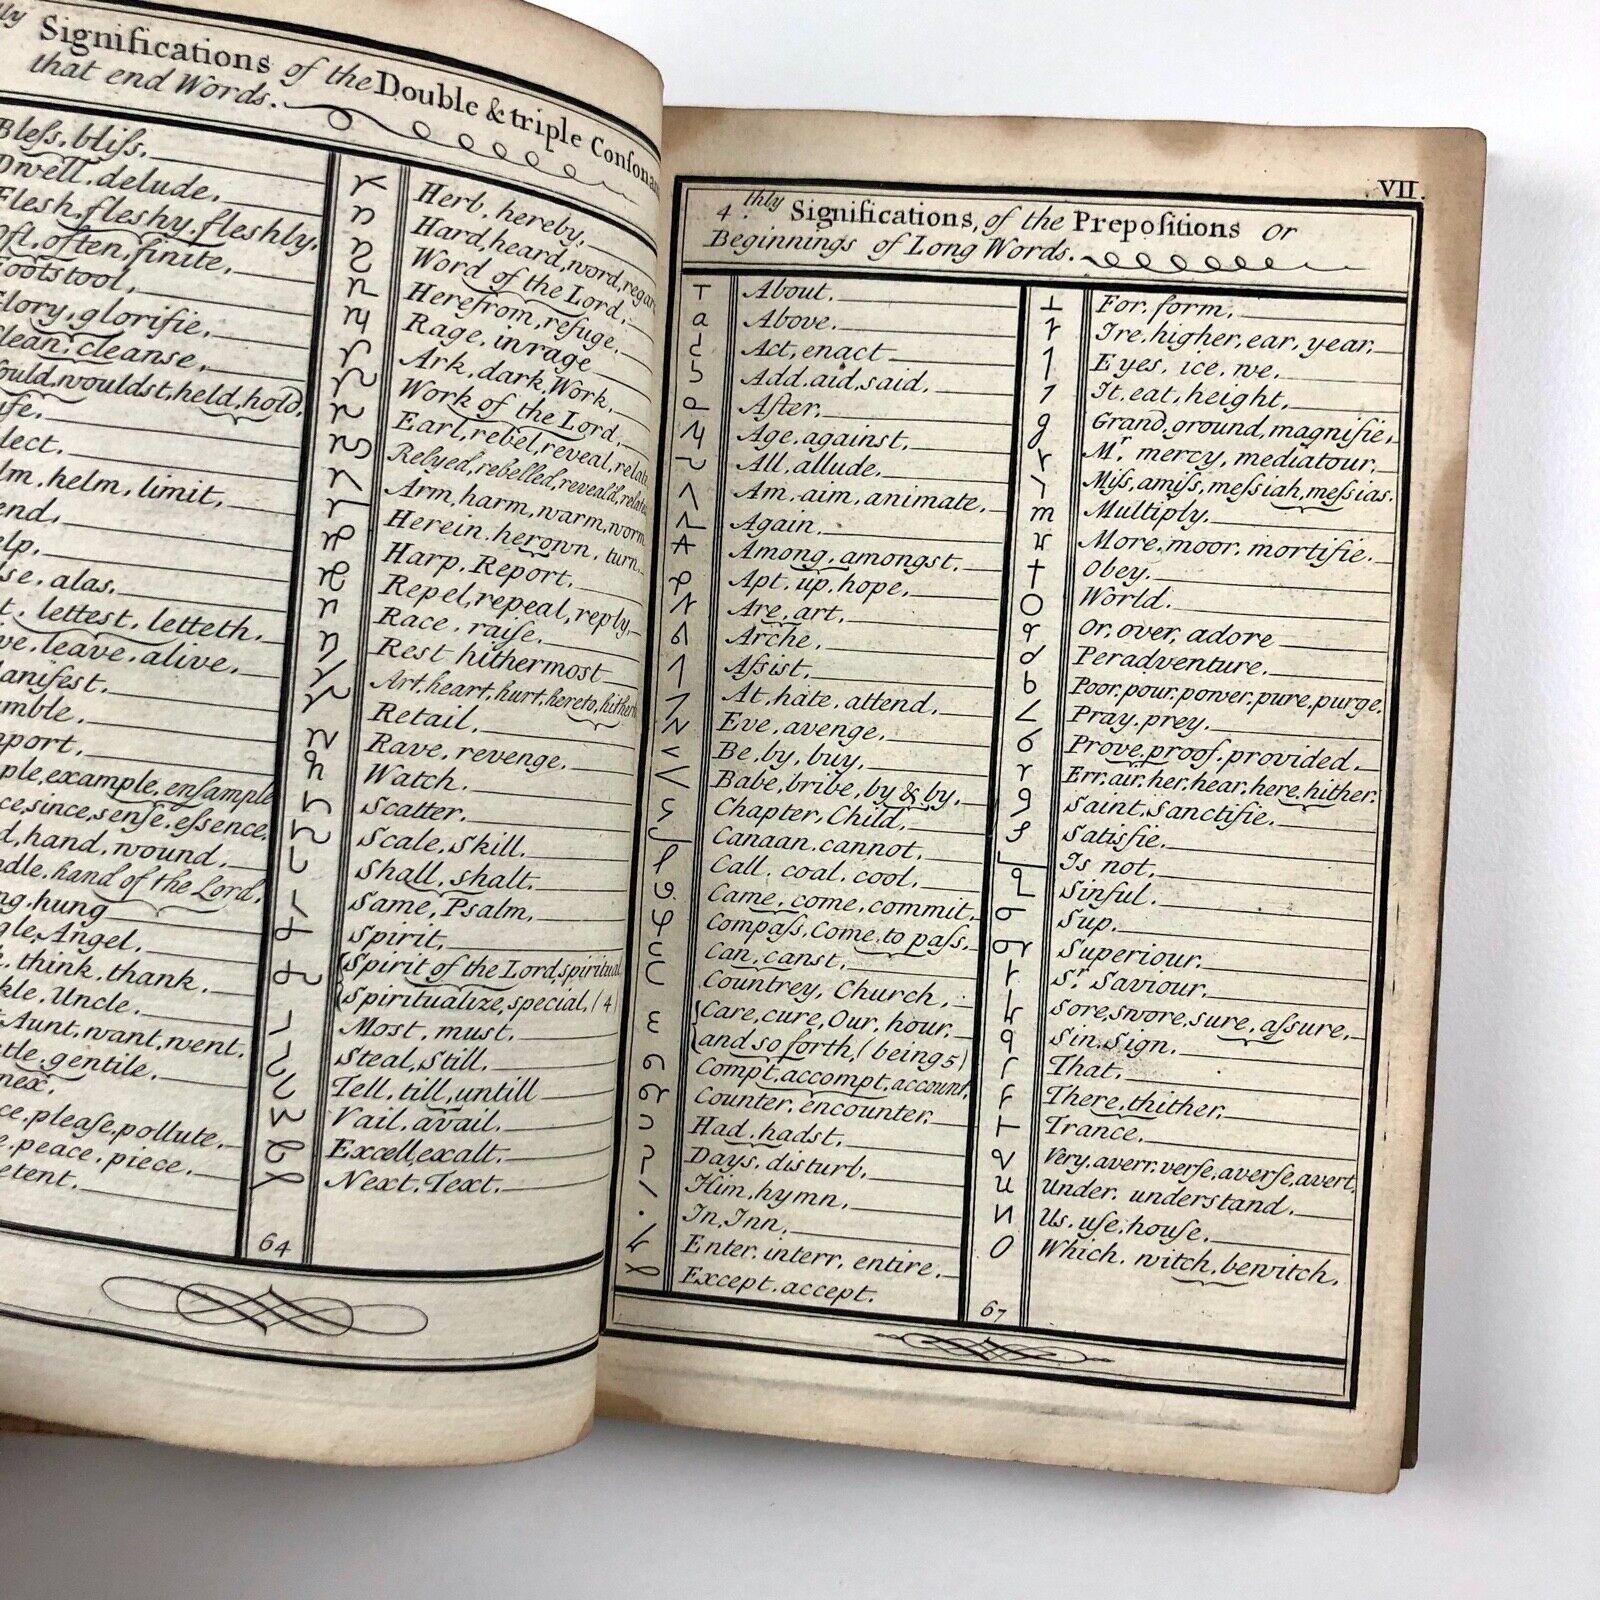 Significations of the Double & triple Conſonan
that end Words.
Bleſs, bliſs,
Dwell, delude,
Flesh, fleshy, fleshly,
oft, often, finite,
Footstool,
Glory, glorifie,
clean, cleanse,
could, wouldst, held, hold,
end,
lm, helm, limit,
elp,
lse, alas,
t, lettest, letteth,
ve, leave, alive,
Manifest,
umble,
mport,
ple, example, enſample
ce, since, senſe, eſsence,
d, hand, wound,
ndle, hand of the Lord,
ng, hung
gle, Angel,
k, think, thank,
kle, Uncle,
t Aunt, want, went,
tle, gentile,
nex,
ce, pleaſe, pollute,
e, peace, piece,
etent,
Herb, hereby,
Hard, heard, word, regar
Word of the Lord,
Herefrom, refuge,
Rage, inrage
Ark, dark, Work,
Work of the Lord,
Earl, rebel, reveal, relat
Relyed, rebelled, reveald, relate
Arm, harm, warm, worm
Herein, herown, turn
Harp, Report,
Repel, repeal, reply,
Race, raiſe,
Rest hithermost
Art, heart, hurt, hereto, hither
Retail,
Rave, revenge,
Watch,
Scatter,
Scale, skill,
Shall, shalt,
Same, Psalm,
Spirit,
Spirit of the Lord, spiritual
Spiritualize, special, (4)
Most, must,
Steal, Still,
Tell, till, untill
Vail, avail,
Excell, exalt,
Next, Text,
64
VII.
4.thly Significations, of the Prepoſitions or
Beginnings of Long Words.
About,
Above,
Act, enact
Add, aid, said,
After,
Age, against,
All, allude,
Am, aim, animate,
Again,
Among, amongst,
Apt, up, hope,
Are, art,
Arche,
Aſsist,
At, hate, attend,
Eve, avenge,
Be, by, buy,
Babe, bribe, by & by,
Chapter, Child,
Canaan, cannot,
Call, coal, cool,
Came, come, commit,
Compaſs, Come to paſs,
Can, canst,
Countrey, Church,
Care, cure, Our, hour,
and so forth, (being 5)
Compt, accompt, account,
Counter, encounter,
Had, hadst,
Days, disturb,
Him, hymn,
In, Inn,
Enter, interr, entire,
Except, accept,
67
For, form,
Ire, higher, ear, year,
Eyes, ice, we,
It, eat, height,
Grand, ground, magnifie,
Mr. mercy, mediatour,
Miſs, amiſs, meſsiah, meſsias,
Multiply,
More, moor, mortifie,
Obey,
World,
Or, over, adore
Peradventure,
Poor, pour, power, pure, purge,
Pray, prey,
Prove, proof, provided,
Err, air, her, hear, here, hither,
Saint, Sanctifie,
Satisfie,
Is not,
Sinful,
Sup,
Superiour,
Sr. Saviour,
Sore, swore, sure, aſsure,
Sin, Sign,
That,
There, thither,
Trance,
Very, averr, verſe, averſe, avert,
Under, understand,
Us, uſe, houſe,
Which, witch, bewitch,